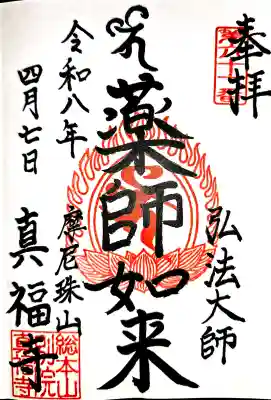 奉拝
弘法大師
薬師如来
摩尼珠山
真福寺
令和八年
四月七日
総本山
別院
真福寺